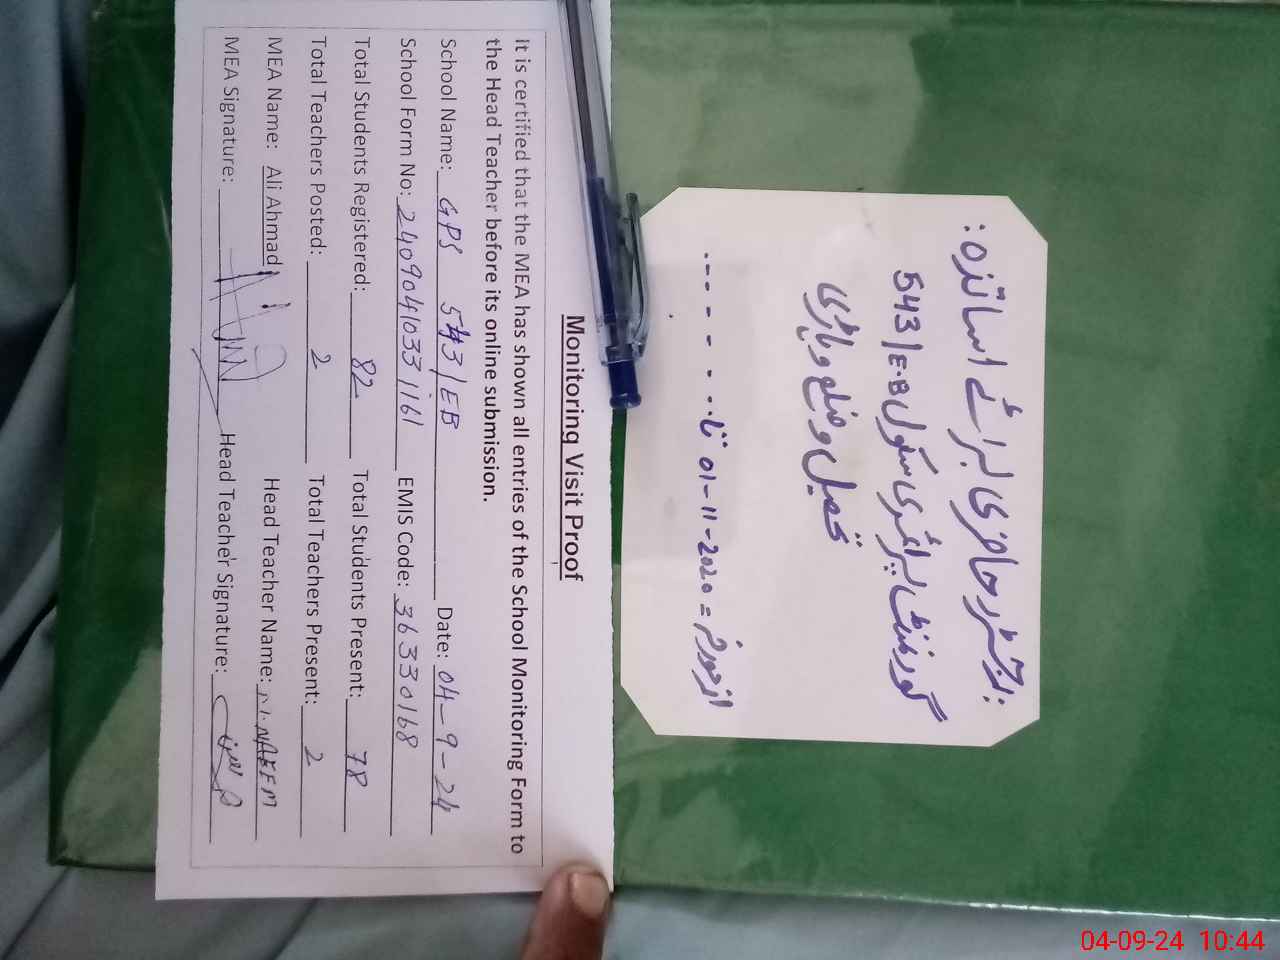 رجسٹر حاضری برائے اساتذہ:
گورنمنٹ پرائمری سکول 543/E.B
تحصیل و ضلع وہاڑی
از مورخہ = 01-11-2020 تا
Monitoring Visit Proof
It is certified that the MEA has shown all entries of the School Monitoring Form to
the Head Teacher before its online submission.
School Name: GPS 543/EB Date: 04-9-24
School Form No: 24090410331161 EMIS Code: 36330168
Total Students Registered: 82 Total Students Present: 78
Total Teachers Posted: 2 Total Teachers Present: 2
MEA Name: Ali Ahmad Head Teacher Name: M.NAEEM
MEA Signature: Head Teacher Signature:
04-09-24 10:44